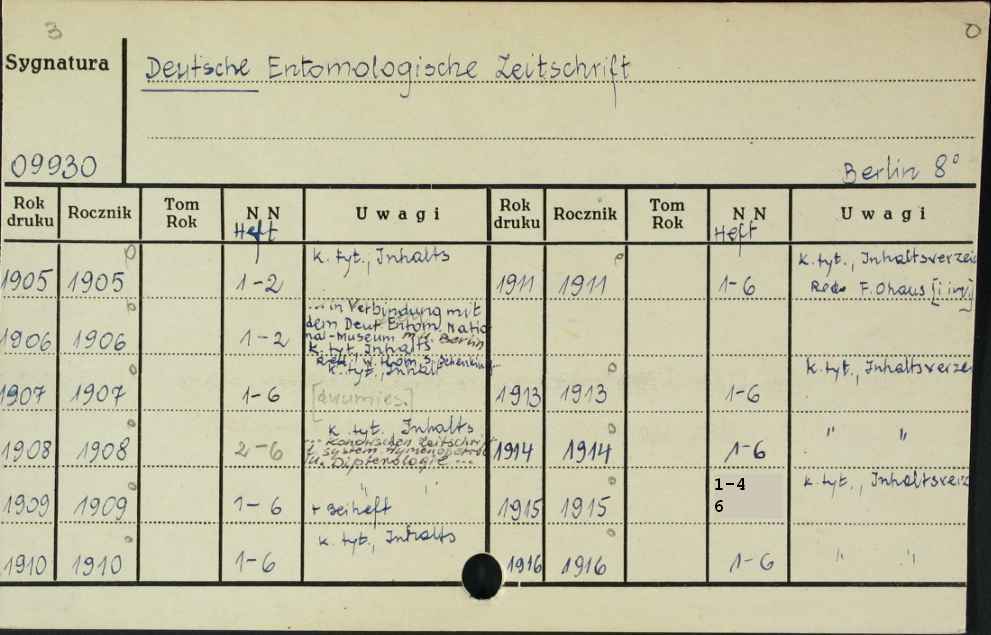 3
0
Sygnatura
Deutsche Entomologische Zeitschrift
09930
Berlin 8°
Rok druku Rocznik Tom Rok NN Heft Uwagi Rok druku Rocznik Tom Rok NN Heft Uwagi
k. tyt., Inhalts
1905 1905 1-2
k. tyt., Inhaltsverzei
1911 1911 1-6 Red. F. Ohaus [i in.]
... in Verbindung mit
dem Deut. Entom. Natio
nal-Museum in Berlin
1906 1906 1-2
k. tyt, Inhalts
k. tyt., Inhalts
k. tyt., Inhaltsverze
1907 1907 1-6
1913 1913 1-6
k. tyt. Inhalts
Zeitschrift
f. system. Hymenopterol
u. Dipterologie ...
1908 1908 2-6
1914 1914 1-6 " "
" "
1909 1909 1-6 + Beiheft
k. tyt., Inhaltsverz
1915 1915 1-4
6
k. tyt., Inhalts
1910 1910 1-6
1916 1916 1-6 " "